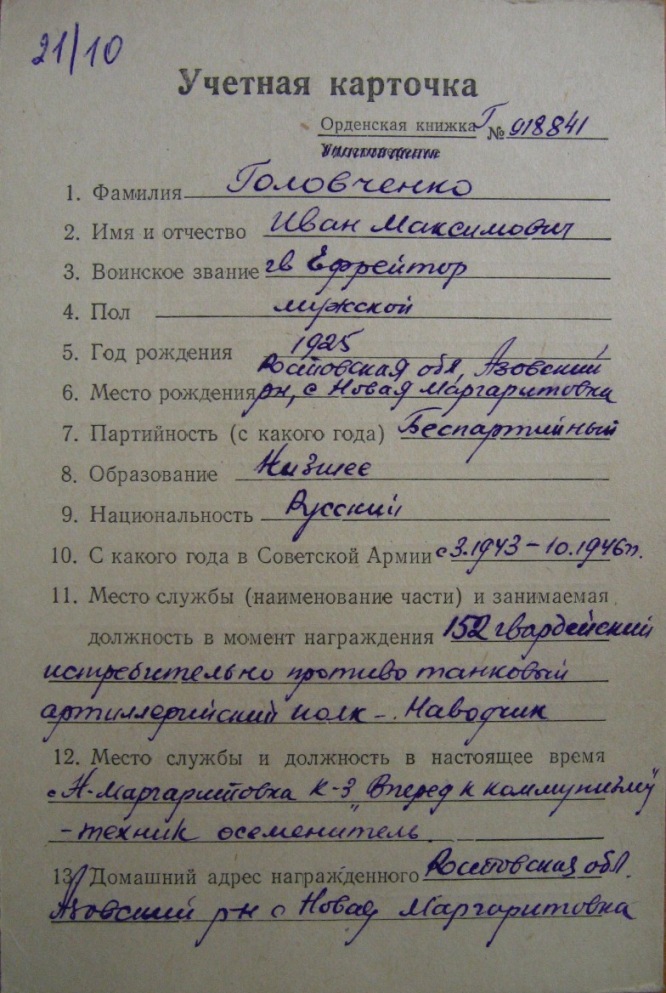 21/10
Учетная карточка
Орденская книжка Г № 918841
1. Фамилия Головченко
2. Имя и отчество Иван Максимович
3. Воинское звание гв Ефрейтор
4. Пол мужской
5. Год рождения 1925
Ростовская обл, Азовский
6. Место рождения рн, с Новая Маргаритовка
7. Партийность (с какого года) Беспартийный
8. Образование Низшее
9. Национальность Русский
10. С какого года в Советской Армии с 3.1943 – 10.1946г.
11. Место службы (наименование части) и занимаемая
должность в момент награждения 152 гвардейский
истребительно противо танковый
артиллерийский полк – Наводчик
12. Место службы и должность в настоящее время
с Н-Маргаритовка к-з „Вперед к коммунизму"
– техник осеменитель
13. Домашний адрес награжденного Ростовская обл.
Азовский р-н с Новая Маргаритовка